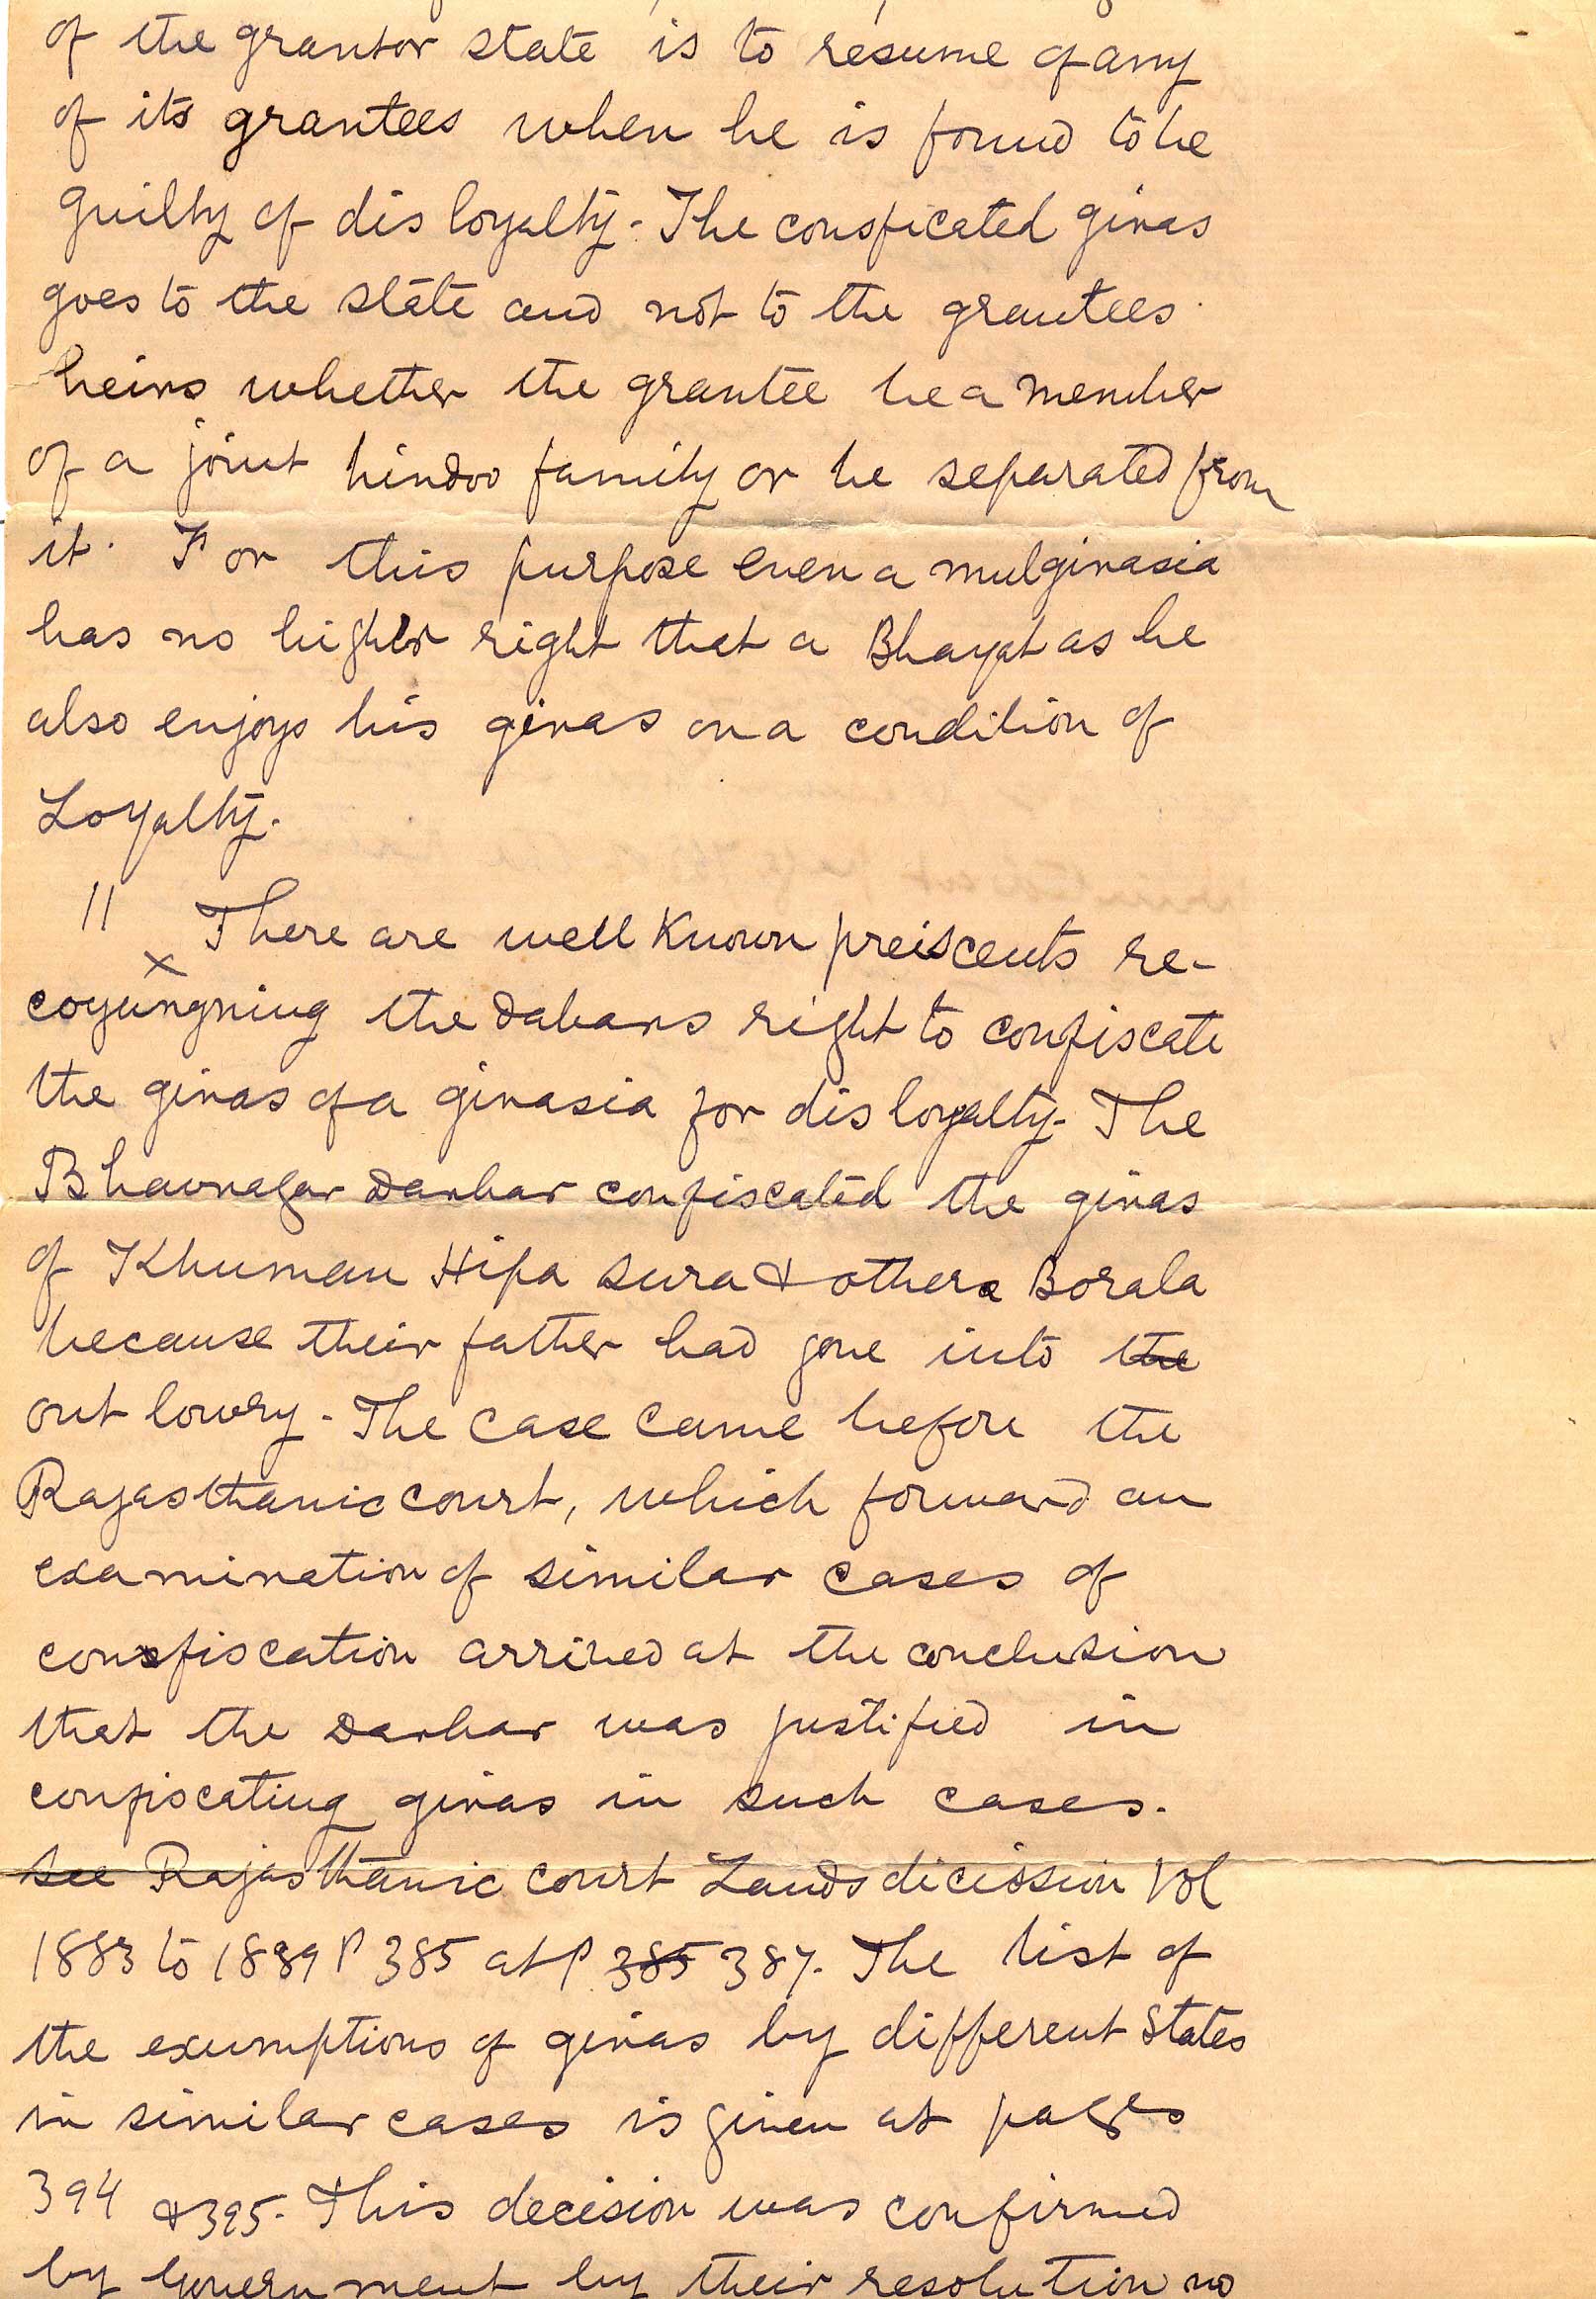 of the grantor state is to resume of any
of its grantees when he is found to be
guilty of dis loyalty. The consficated giras
goes to the state and not to the grantees
heirs whether the grantee be a member
of a joint hindoo family or be separated from
it. For this purpose even a mulgirasia
has no higher right that a Bhayat as he
also enjoys his giras on a condition of
Loyalty.
11 There are well known preiscents re-
x
coyungning the dabars right to confiscate
the giras of a girasia for dis loyalty. The
Bhavnagar Darbar confiscated the giras
of Khuman Hipa sura & others Borala
because their father had gone into the
out lowry. The case came before the
Rajasthanic court, which forward an
examination of similar cases of
confiscation arrived at the conclusion
that the Darbar was justified in
confiscating giras in such cases.
see Rajasthanic court Lands dicission Vol
1883 to 1889 P 385 at P 385 387. The list of
the exumptions of giras by different States
in similar cases is given at pages
394 & 395. This decision was confirmed
by Government by their resolution no